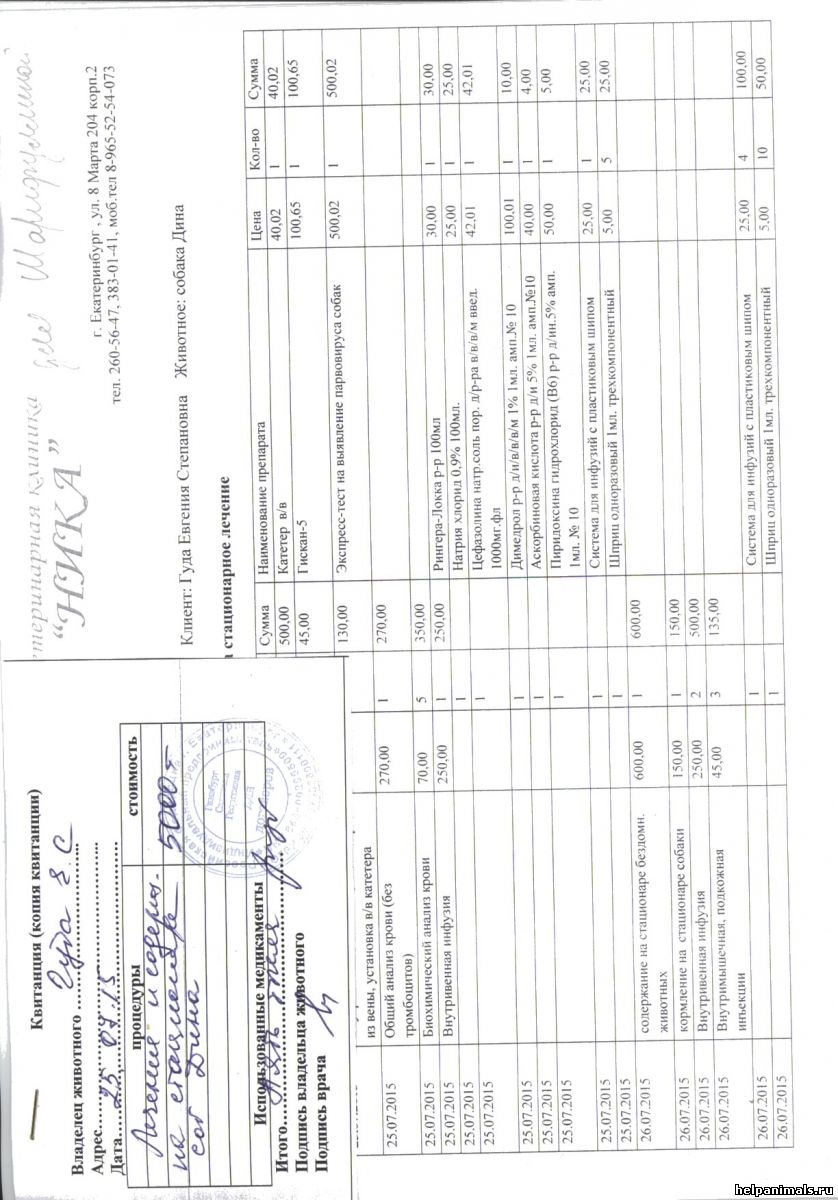 Квитанция (копия квитанции)
Владелец животного Гуда Е. С
Адрес
Дата 25 07.15
процедуры стоимость
Лечение и содержа-
на стационаре 5000
соб Дина
Использованные медикаменты
Итого
Подпись владельца животного
Подпись врача
теринарная клиника
“НИКА”
г. Екатеринбург , ул. 8 Марта 204 корп.2
тел. 260-56-47, 383-01-41, моб.тел 8-965-52-54-073
Клиент: Гуда Евгения Степановна Животное: собака Дина
а стационарное лечение
Сумма Наименование препарата Цена Кол-во Сумма
500,00 Катетер в/в 40,02 1 40,02
45,00 Гискан-5 100,65 1 100,65
130,00 Экспресс-тест на выявление парвовируса собак 500,02 1 500,02
из вены, установка в/в катетера
25.07.2015 Общий анализ крови (без 270,00 1 270,00
тромбоцитов)
25.07.2015 Биохимический анализ крови 70,00 5 350,00 Рингера-Локка р-р 100мл 30,00 1 30,00
25.07.2015 Внутривенная инфузия 250,00 1 250,00 Натрия хлорид 0,9% 100мл. 25,00 1 25,00
25.07.2015 1 Цефазолина натр.соль пор. д/р-ра в/в/в/м введ. 42,01 1 42,01
25.07.2015 1 1000мг.фл
25.07.2015 1 Димедрол р-р д/и/в/в/м 1% 1мл. амп.№ 10 100,01 1 10,00
25.07.2015 1 Аскорбиновая кислота р-р д/и 5% 1мл. амп.№10 40,00 1 4,00
25.07.2015 1 Пиридоксина гидрохлорид (В6) р-р д/ин.5% амп. 50,00 1 5,00
1мл. № 10
25.07.2015 1 Система для инфузий с пластиковым шипом 25,00 1 25,00
25.07.2015 1 Шприц одноразовый 1мл. трехкомпонентный 5,00 5 25,00
26.07.2015 содержание на стационаре бездомн. 600,00 1 600,00
животных
26.07.2015 кормление на стационаре собаки 150,00 1 150,00
26.07.2015 Внутривенная инфузия 250,00 2 500,00
26.07.2015 Внутримышечная, подкожная 45,00 3 135,00
инъекции
26.07.2015 1 Система для инфузий с пластиковым шипом 25,00 4 100,00
26.07.2015 1 Шприц одноразовый 1мл. трехкомпонентный 5,00 10 50,00
helpanimals.ru